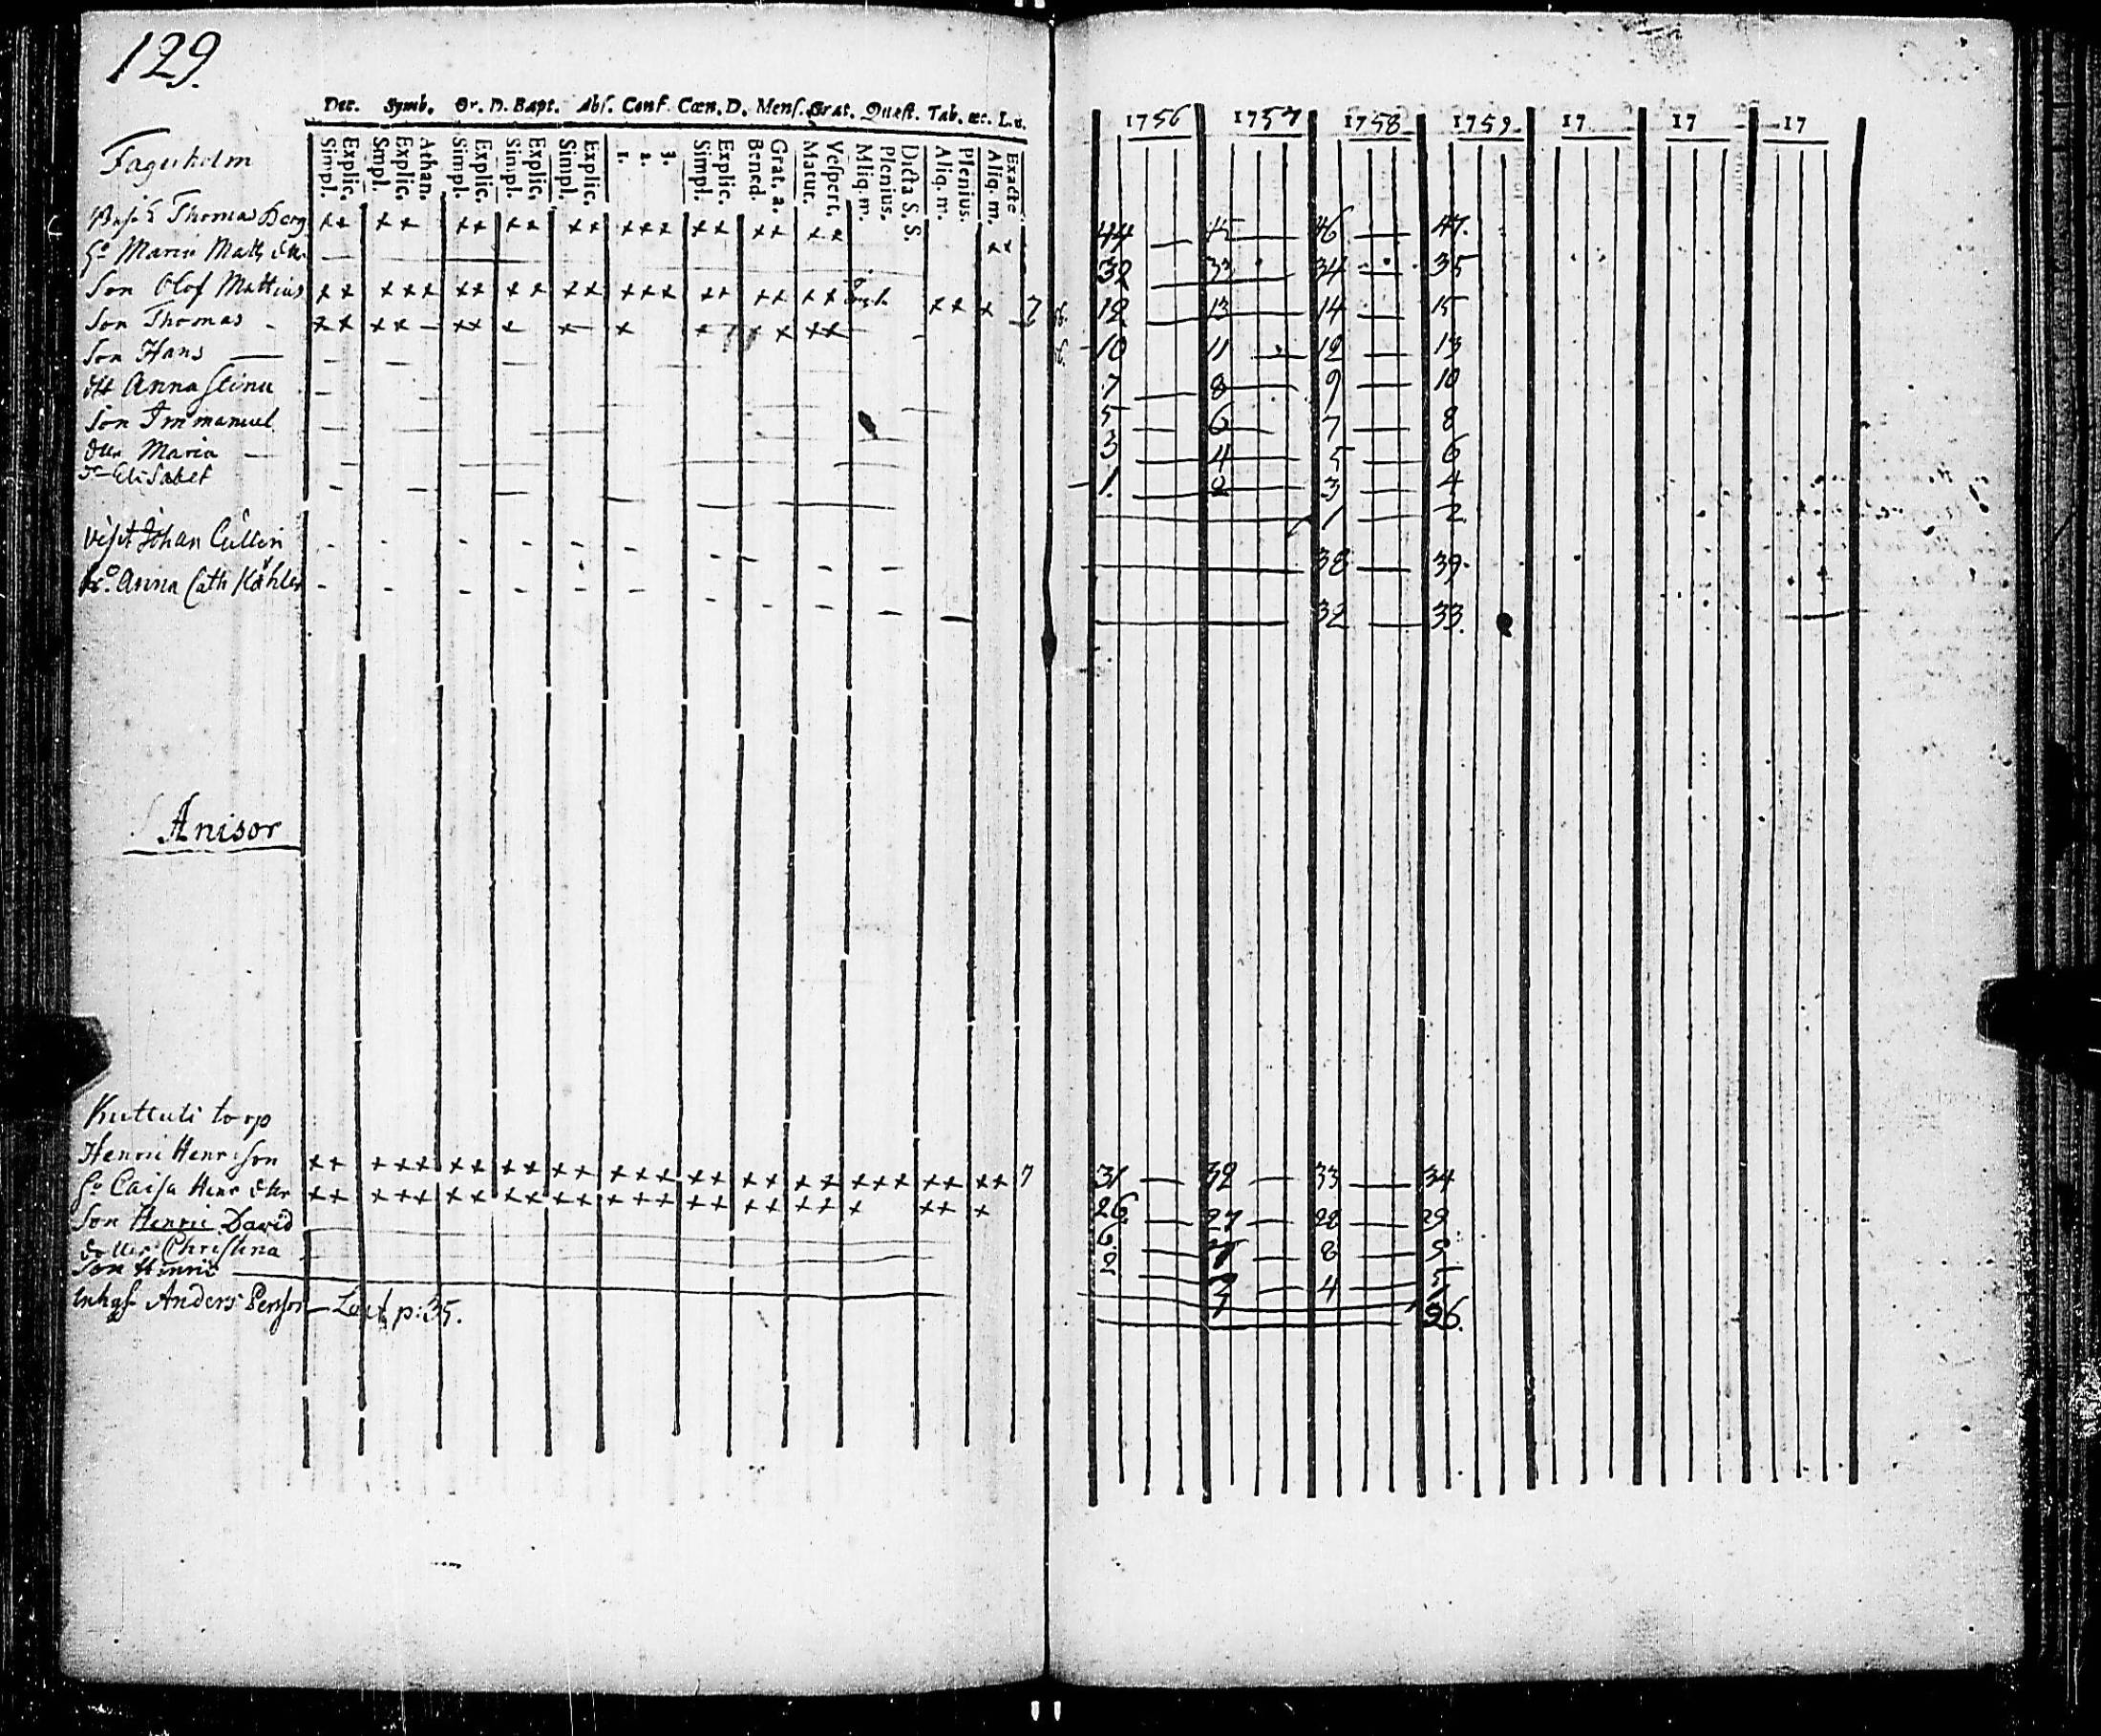 129.
Dec. Symb. Or. D. Bapt. Abs. Conf. Cœn. D. Mens. Grat. Quæst. Tab. œc. L.
Simpl. Explic. Smpl. Explic. Athan. Simpl. Explic. Simpl. Explic. Simpl. Explic. 1. 2. 3. Simpl. Explic. Bened. Grat. a. Matut. Vespert. Aliq. m. Plenius. Dicta S. S. Aliq. m. Plenius. Aliq. m. Exacte
1756 1757 1758 1759 17 17 17
Fagerholm
Thomas Berg 44 45 46 47.
Hu Maria Matts dtter 32 33 34 35
Son Olof Mattias 12 13 14 15
Son Thomas 10 11 12 13
Son Hans 7 8 9 10
dtt Anna Stina 5 6 7 8
Son Immanuel 3 4 5 6
dtter Maria 1. 2 3 4
Elisabet 1 2
Johan Cullin 38 39.
Anna Cath Köhler 32 33.
Anisor
Kuttuli torp
Henric Henricson 7 31 32 33 34
Hu Caisa Henr dtter 26 27 28 29
Son Henric David 6 8 9
dotter Christina 4
Son Henric
Inhys Anders Person p: 35. 26.